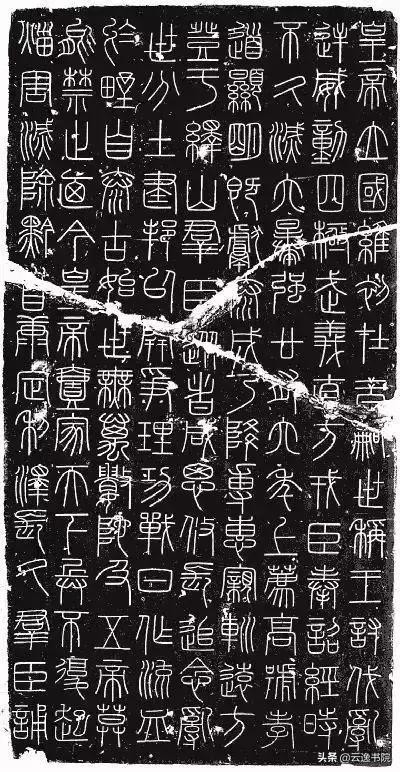 皇帝立國維初在昔嗣世稱王討伐亂
逆威動四極武義直方戎臣奉詔經時
不久滅六暴強廿有六年上薦高號孝
道顯明既獻泰成乃降專惠親巡遠方
登于繹山群臣從者咸思攸長追念亂
世分土建邦以開爭理功戰日作流血
於野自泰古始世無萬數陀及五帝莫
能禁止迺今皇帝壹家天下兵不復起
災害滅除黔首康定利澤長久群臣誦
头条 @云逸书院